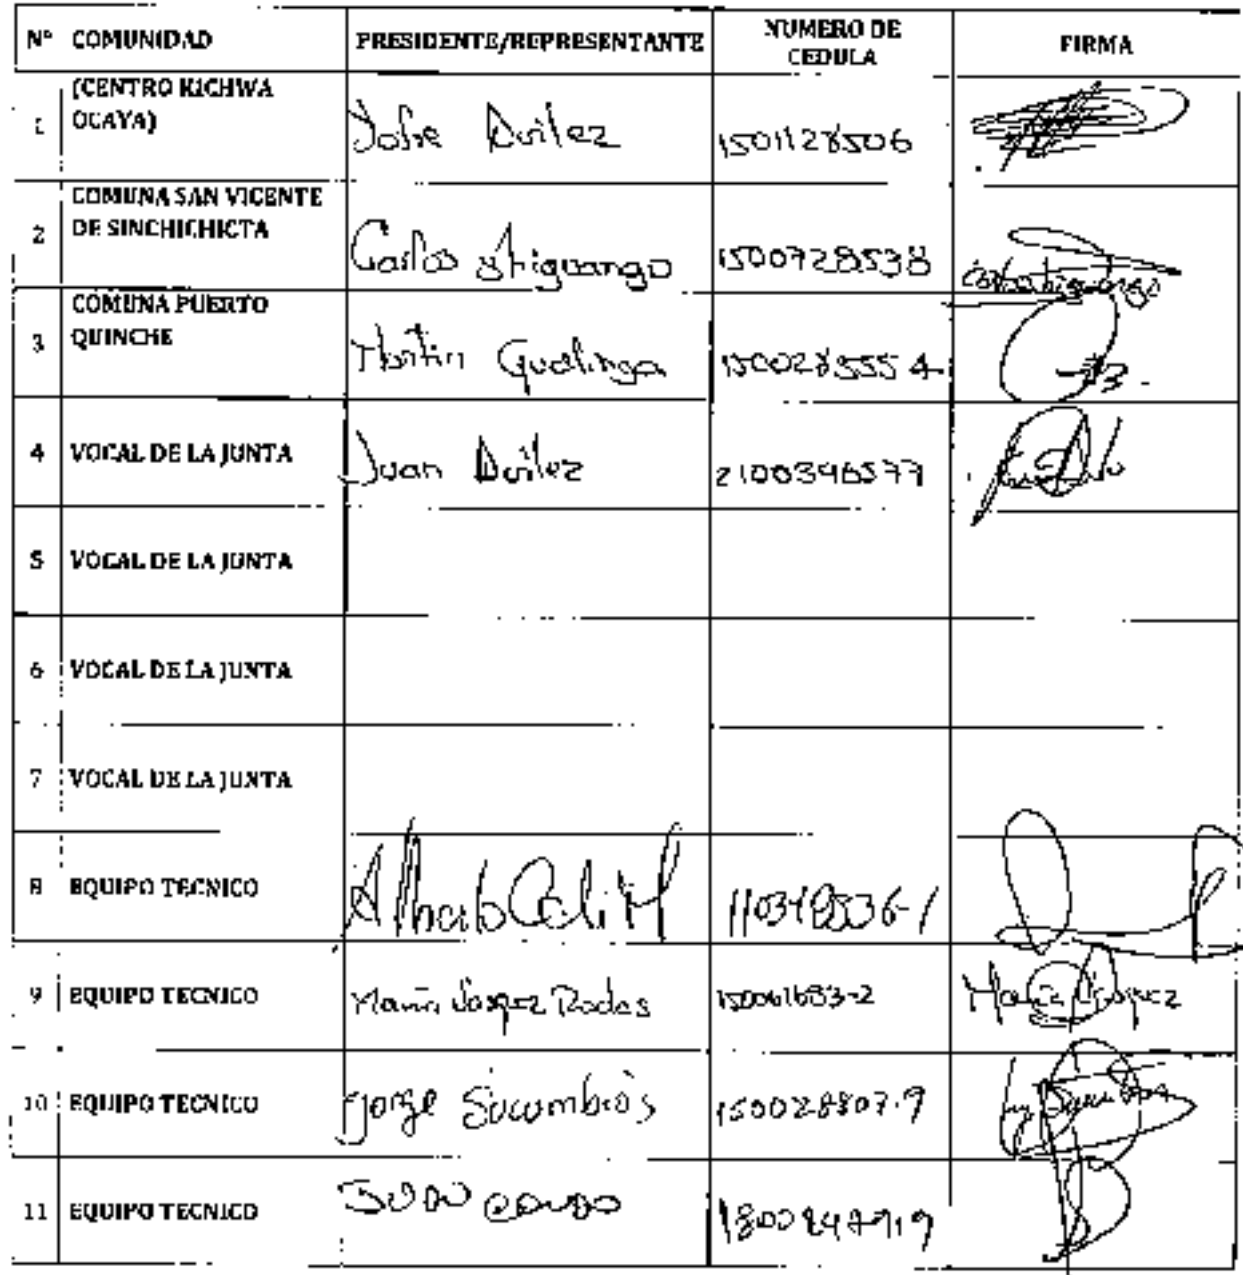 Nº COMUNIDAD PRESIDENTE/REPRESENTANTE NUMERO DE CEDULA FIRMA
1 (CENTRO KICHWA OCAYA) Jofre Avilez 1501128506
2 COMUNA SAN VICENTE DE SINCHICHICTA Carlos Shiguango 1500728538
3 COMUNA PUERTO QUINCHE Martin Gualinga 1500285554
4 VOCAL DE LA JUNTA Juan Avilez 2100396577
5 VOCAL DE LA JUNTA
6 VOCAL DE LA JUNTA
7 VOCAL DE LA JUNTA
8 EQUIPO TECNICO Alberto Celi M
9 EQUIPO TECNICO Maria Vasquez Rodas
10 EQUIPO TECNICO Jorge Sucumbios 150028807-9
11 EQUIPO TECNICO